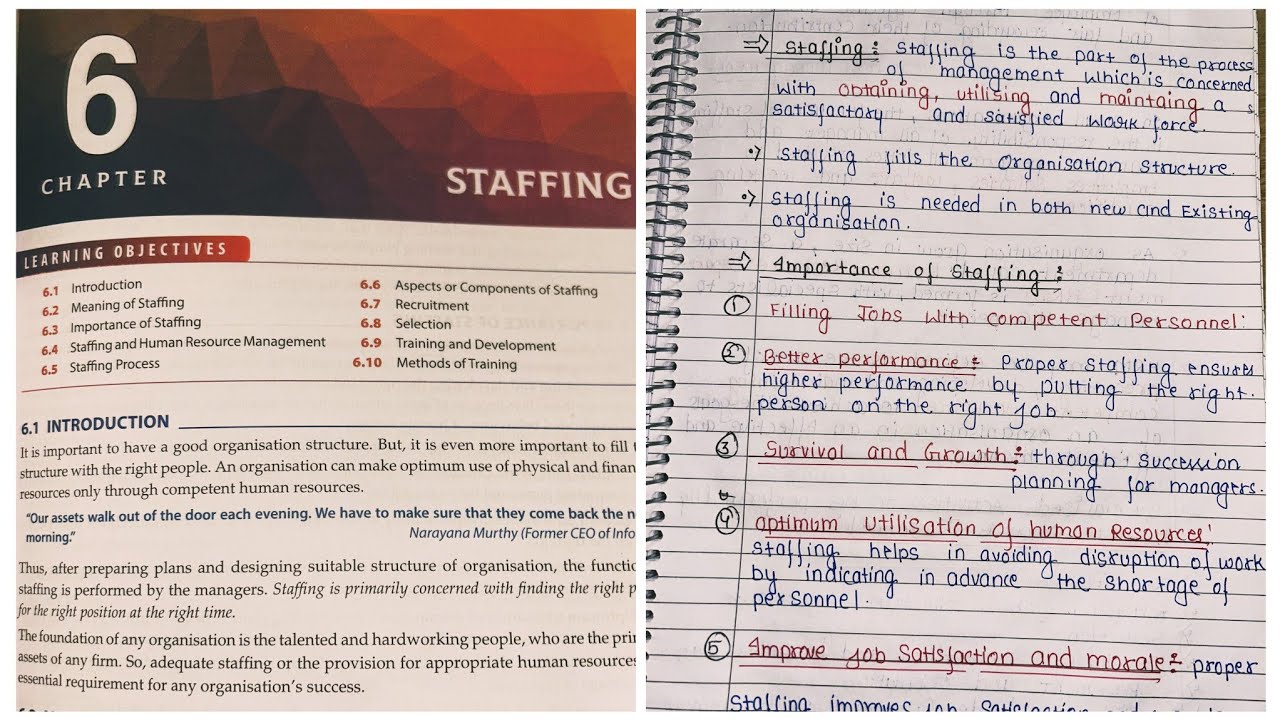 6
CHAPTER
STAFFING
LEARNING OBJECTIVES
6.1 Introduction
6.2 Meaning of Staffing
6.3 Importance of Staffing
6.4 Staffing and Human Resource Management
6.5 Staffing Process
6.6 Aspects or Components of Staffing
6.7 Recruitment
6.8 Selection
6.9 Training and Development
6.10 Methods of Training
6.1 INTRODUCTION
It is important to have a good organisation structure. But, it is even more important to fill
structure with the right people. An organisation can make optimum use of physical and finan
resources only through competent human resources.
"Our assets walk out of the door each evening. We have to make sure that they come back the n
morning."
Narayana Murthy (Former CEO of Info
Thus, after preparing plans and designing suitable structure of organisation, the functi
staffing is performed by the managers. Staffing is primarily concerned with finding the right p
for the right position at the right time.
The foundation of any organisation is the talented and hardworking people, who are the pri
assets of any firm. So, adequate staffing or the provision for appropriate human resources
essential requirement for any organisation's success.
⇒ Staffing : Staffing is the part of the process
of management which is concerned
with obtaining, utilising and maintaing a
satisfactory, and satisfied work force.
Staffing fills the Organisation Structure.
Staffing is needed in both new and Existing
organisation.
⇒ Importance of Staffing :
① Filling Jobs With Competent Personnel:
② Better performance : Proper Staffing ensures
higher performance by putting the right
person on the right Job.
③ Survival and Growth : through succession
planning for managers.
④ optimum utilisation of human Resources:
Staffing helps in avoiding disruption of work
by indicating in advance the shortage of
personnel.
⑤ Improve Job Satisfaction and morale : proper
Staffing improves Job Satisfaction